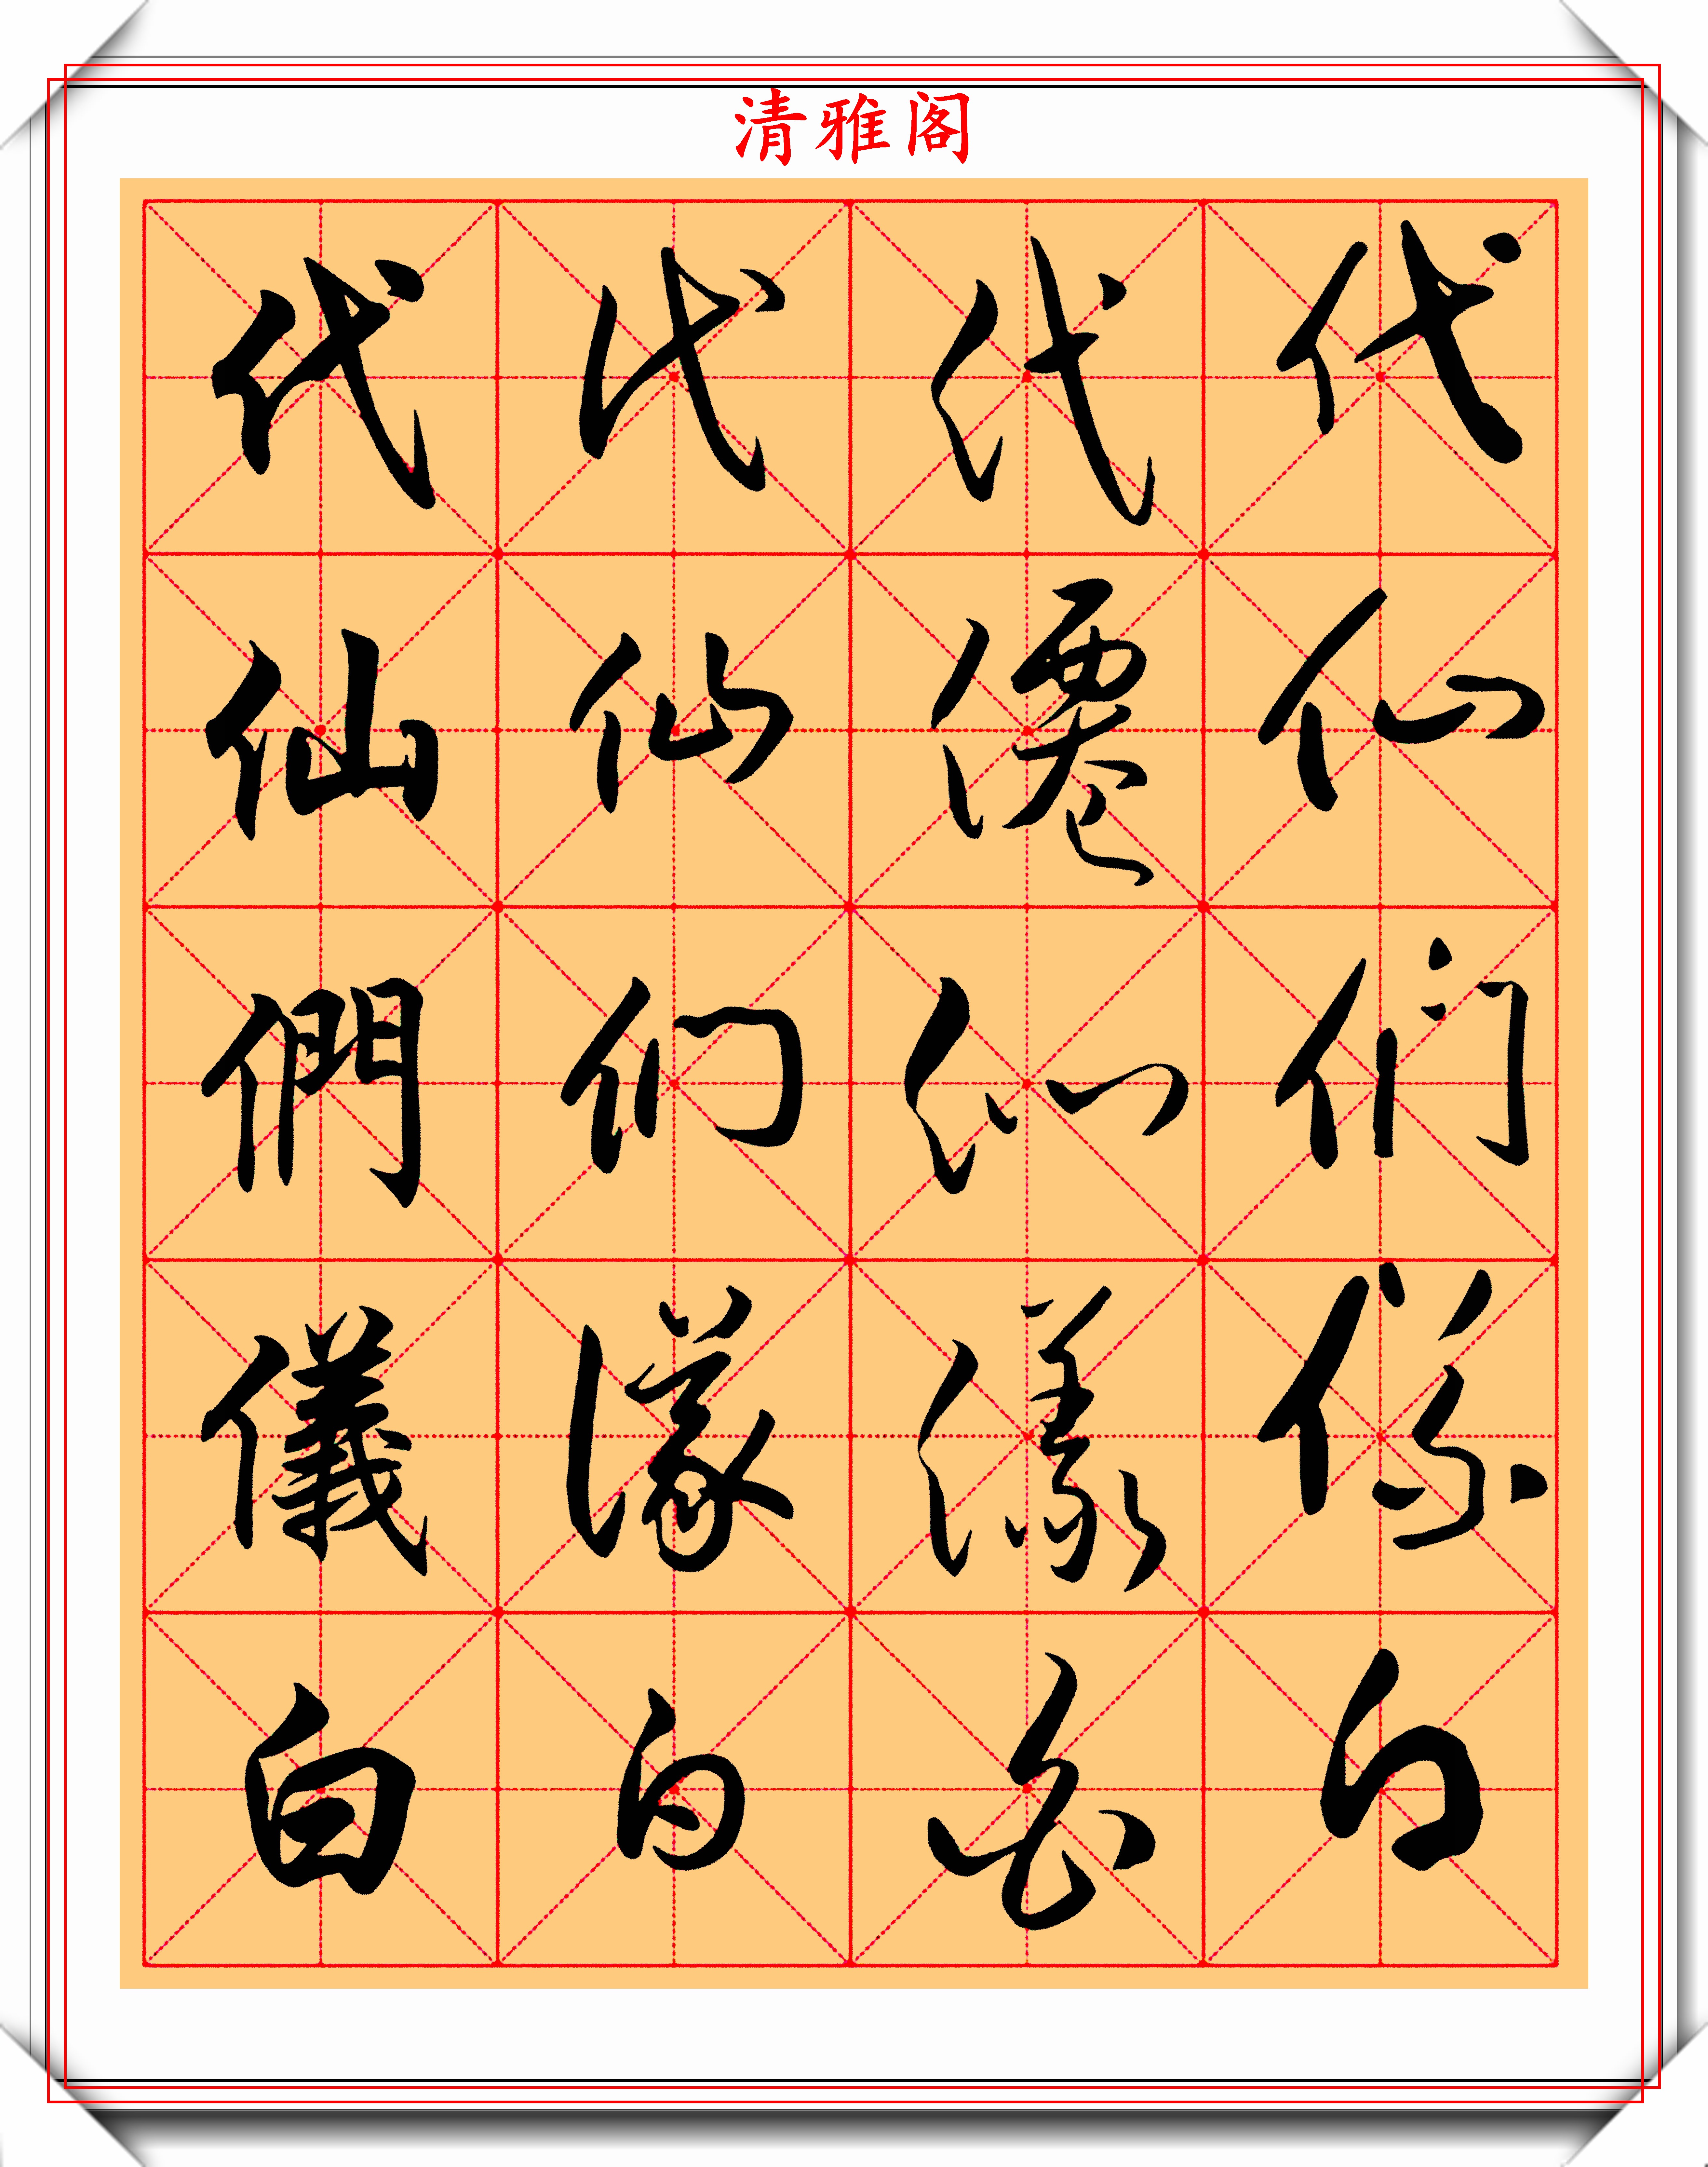 清雅阁
代代代代
仙仙僊仙
們们们们
儀儀儀儀
白白白白